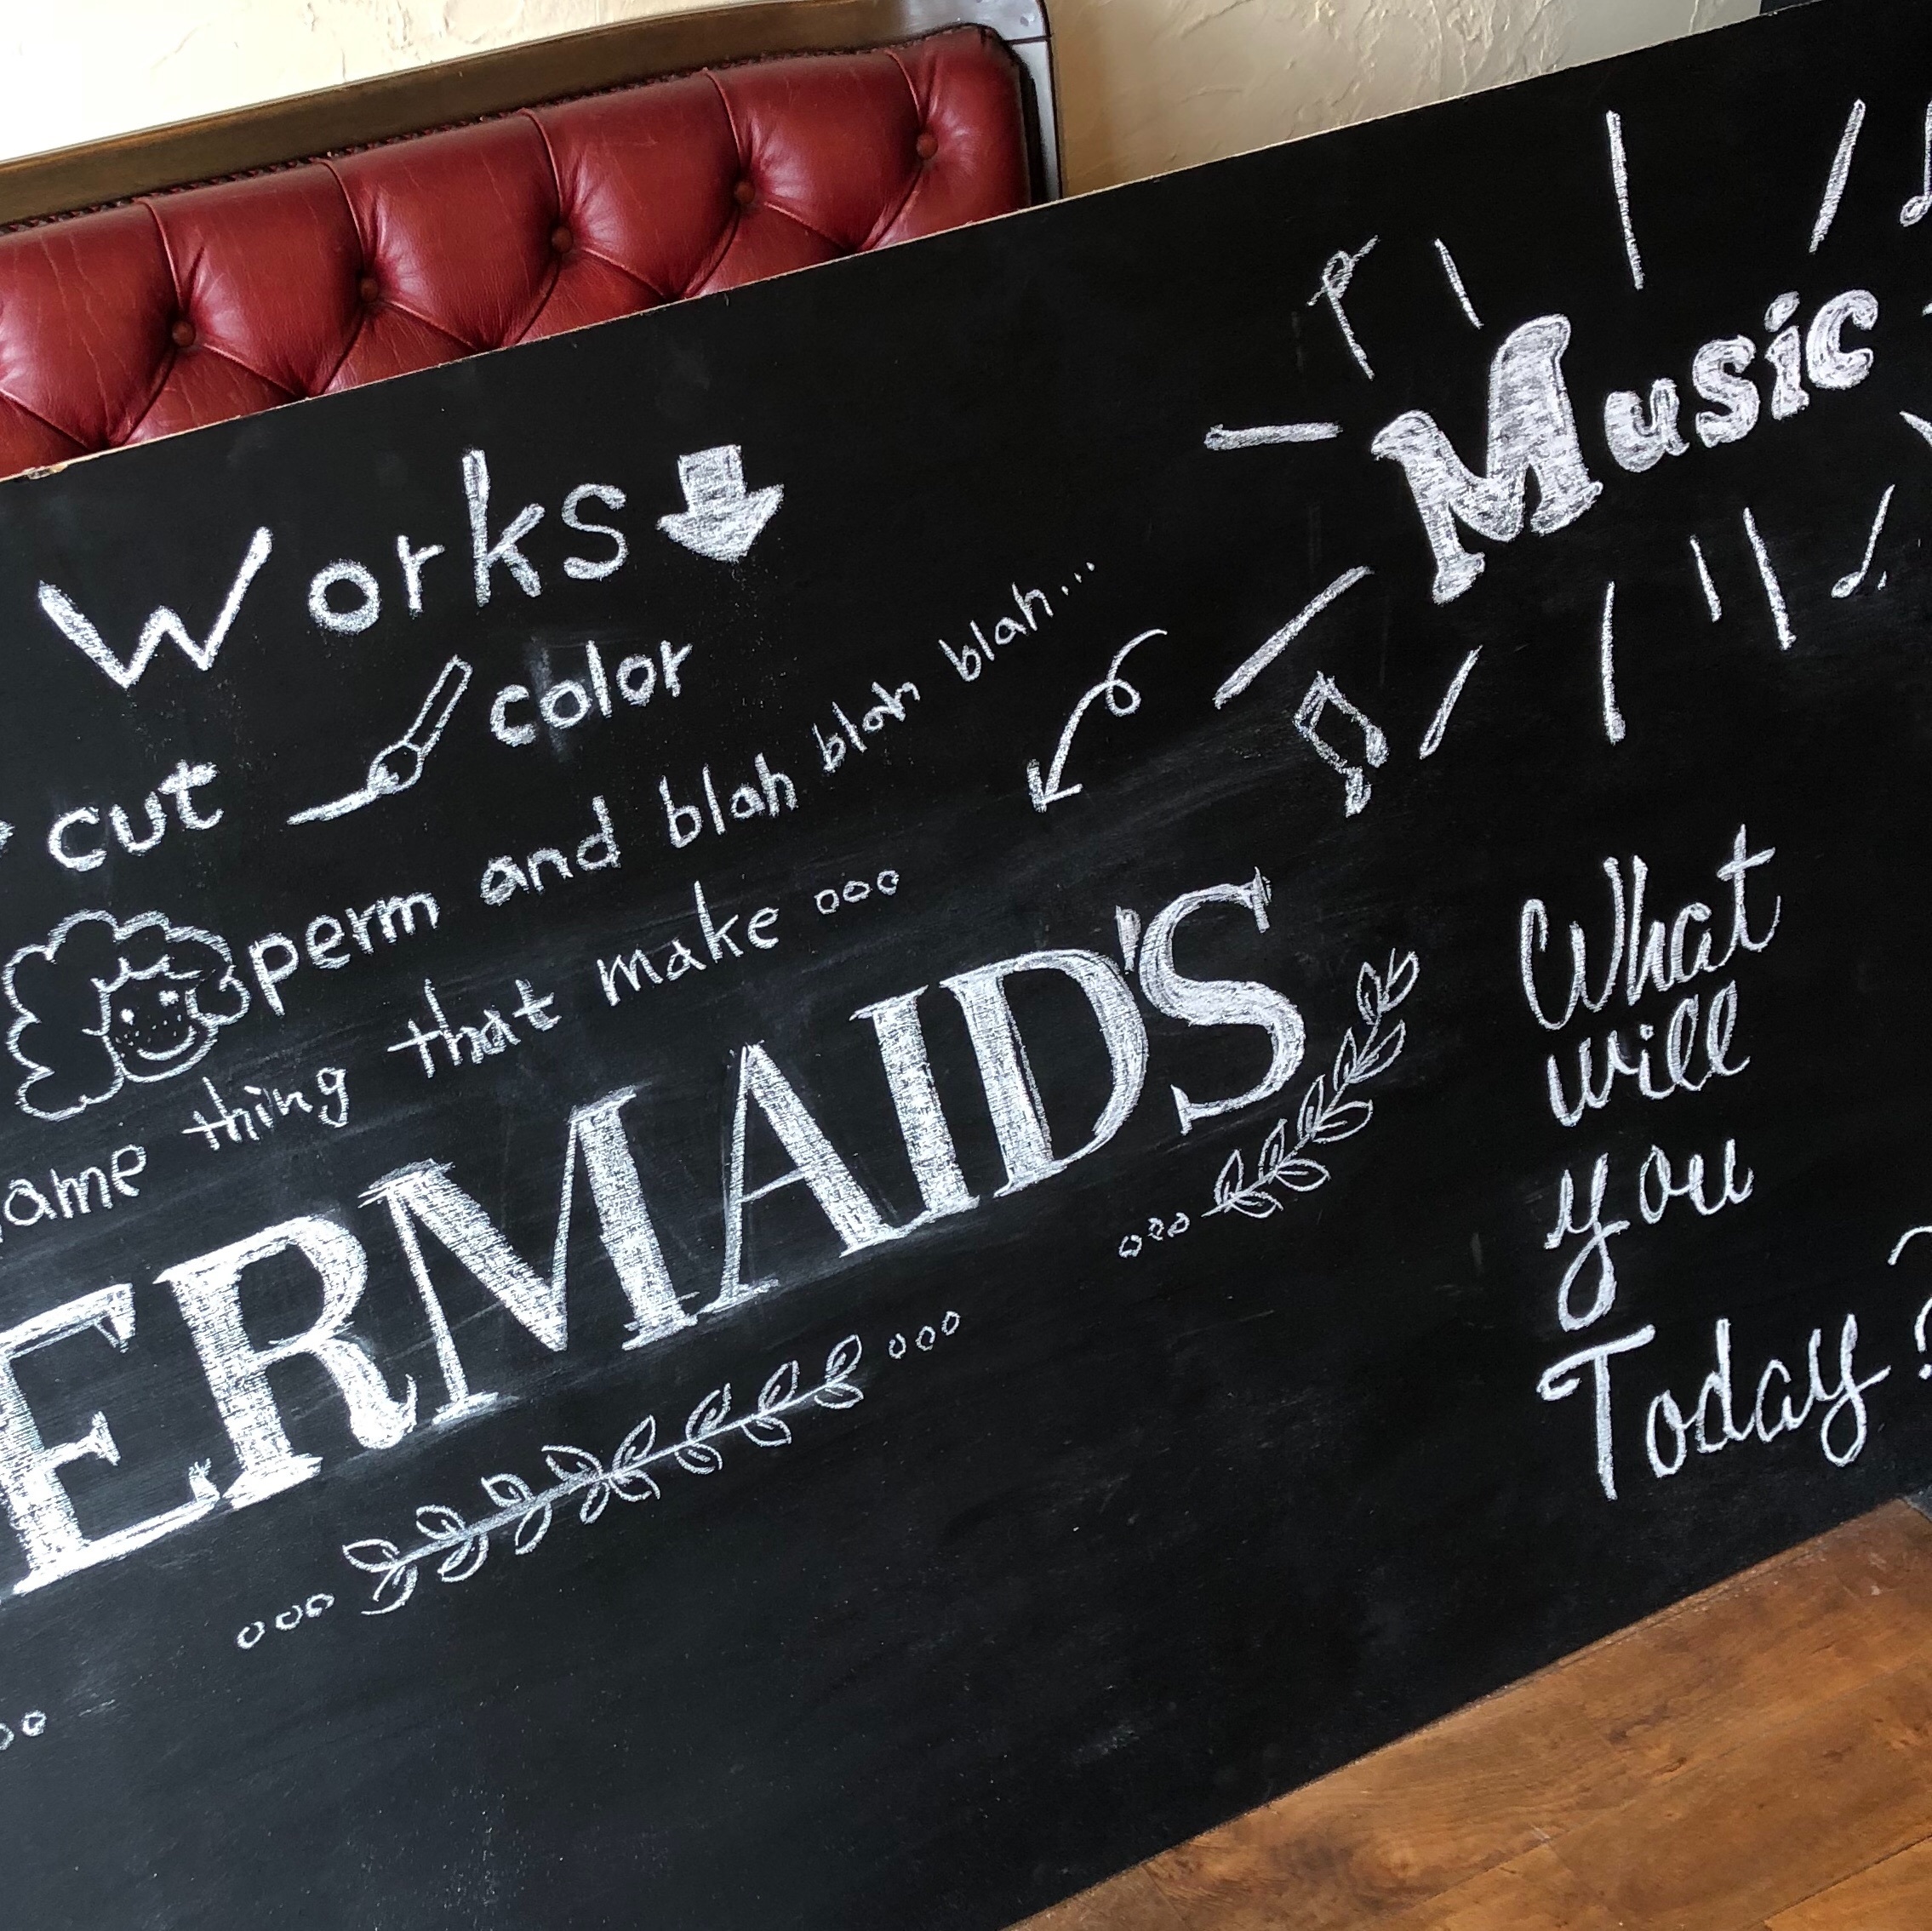 Works
cut color
perm and blah blah blah...
ame thing that make ooo
ERMAID'S
Music
What
will
you
Today?